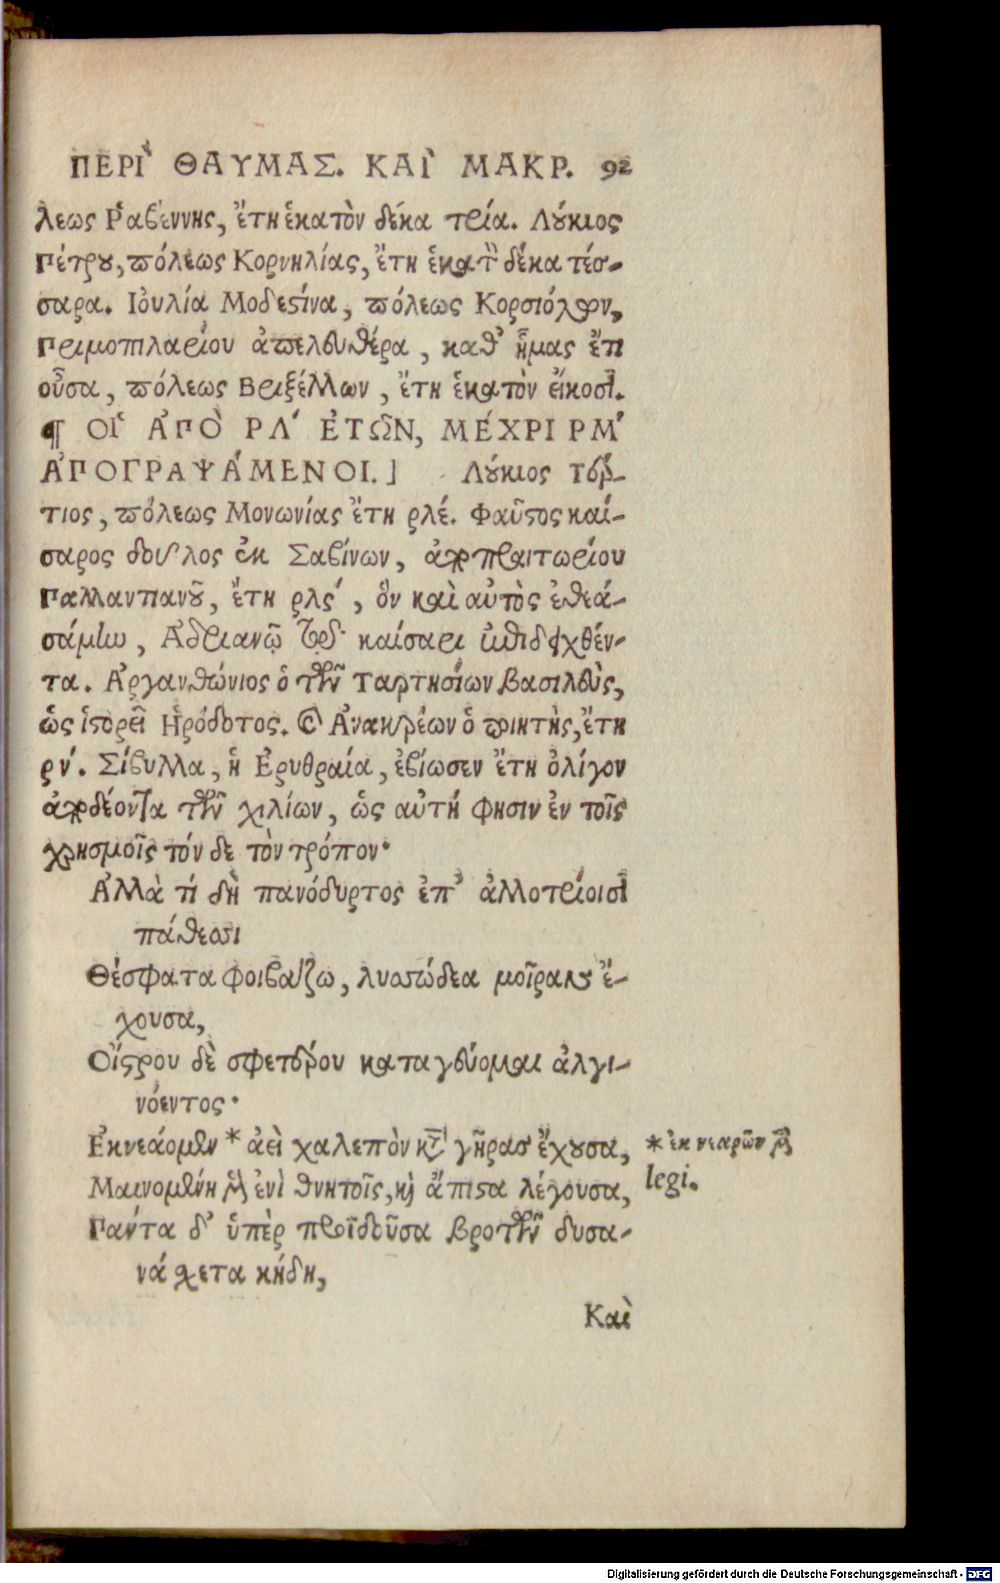 ΠΕΡΙ ΘΑΥΜΑΣ. ΚΑΙ ΜΑΚΡ. 92
λεως Ῥαβέννης, ἔτη ἑκατὸν δέκα τρία. Λούκιος
Πέτρου, πόλεως Κορνηλίας, ἔτη ἑκατὸν δέκα τέσ-
σαρα. Ἰουλία Μοδεστίνα, πόλεως Κορσιόλων,
Πριμοπιλαρίου ἀπελευθέρα, καθ' ἡμας ἔτι
οὖσα, πόλεως Βριξέλλων, ἔτη ἑκατὸν εἴκοσι.
¶ ΟΙ ἈΠΟ ΡΛ' ἘΤΩΝ, ΜΕΧΡΙ ΡΜ'
ἈΠΟΓΡΑΨΑΜΕΝΟΙ.] Λούκιος Τέρ-
τιος, πόλεως Μονωνίας ἔτη ρλέ. Φαῦστος καί-
σαρος δοῦλος ἐκ Σαβίνων, ἀπὸ πραιτωρίου
Παλλαντιανοῦ, ἔτη ρλς', ὃν καὶ αὐτὸς ἐθεα-
σάμην, Ἀδριανῷ τῷ καίσαρι ἐπιδειχθέν-
τα. Ἀργανθώνιος ὁ τῶν Ταρτησίων βασιλεὺς,
ὡς ἱστορεῖ Ἡρόδοτος. Ἀνακρέων ὁ ποιητὴς, ἔτη
ρν'. Σίβυλλα, ἡ Ἐρυθραία, ἐβίωσεν ἔτη ὀλίγον
ἀποδέοντα τῶν χιλίων, ὡς αὐτή φησιν ἐν τοῖς
χρησμοῖς τόν δε τὸν τρόπον·
Ἀλλὰ τί δὴ πανόδυρτος ἐπ' ἀλλοτρίοισι
πάθεσι
Θέσφατα φοιβάζω, λυσσώδεα μοῖραν ἔ-
χουσα,
Οἴστρου δὲ σφετέρου καταγεύομαι ἀλγι-
νόεντος·
Ἐκνεάομεν * ἀεὶ χαλεπὸν κατὰ γῆρας ἔχουσα,
Μαινομένη μὲν ἐνὶ θνητοῖς, καὶ ἄπιστα λέγουσα,
Πάντα δ' ὑπὲρ προϊδοῦσα βροτῶν δυσα-
νάχετα κήδη,
Καὶ
* ἐκ νεαρῶν μὲν
legi.
Digitalisierung gefördert durch die Deutsche Forschungsgemeinschaft - DFG